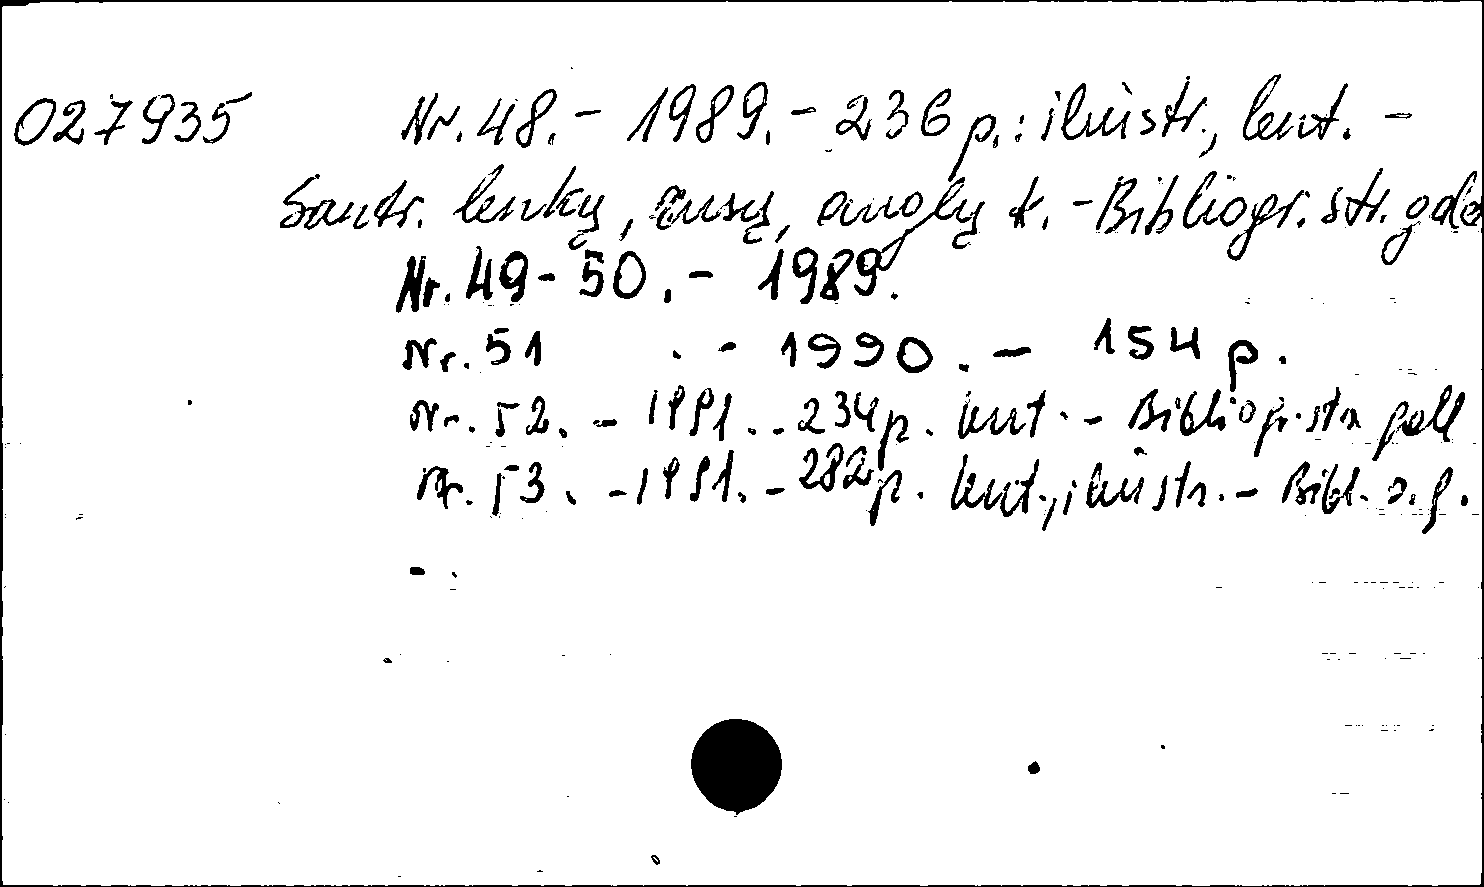 027935 Nr. 48. - 1989. - 236 p.: iliustr., lent. -
Santr. lenkų, rusų, anglų k. - Bibliogr. str. gale
Nr. 49-50. - 1989.
Nr. 51 . - 1990. - 154 p.
Nr. 52. - 1991. - 234 p. lent. - Bibliogr. str. gale
Nr. 53. - 1991. - 282 p. lent., iliustr. - Bibl. s. g.